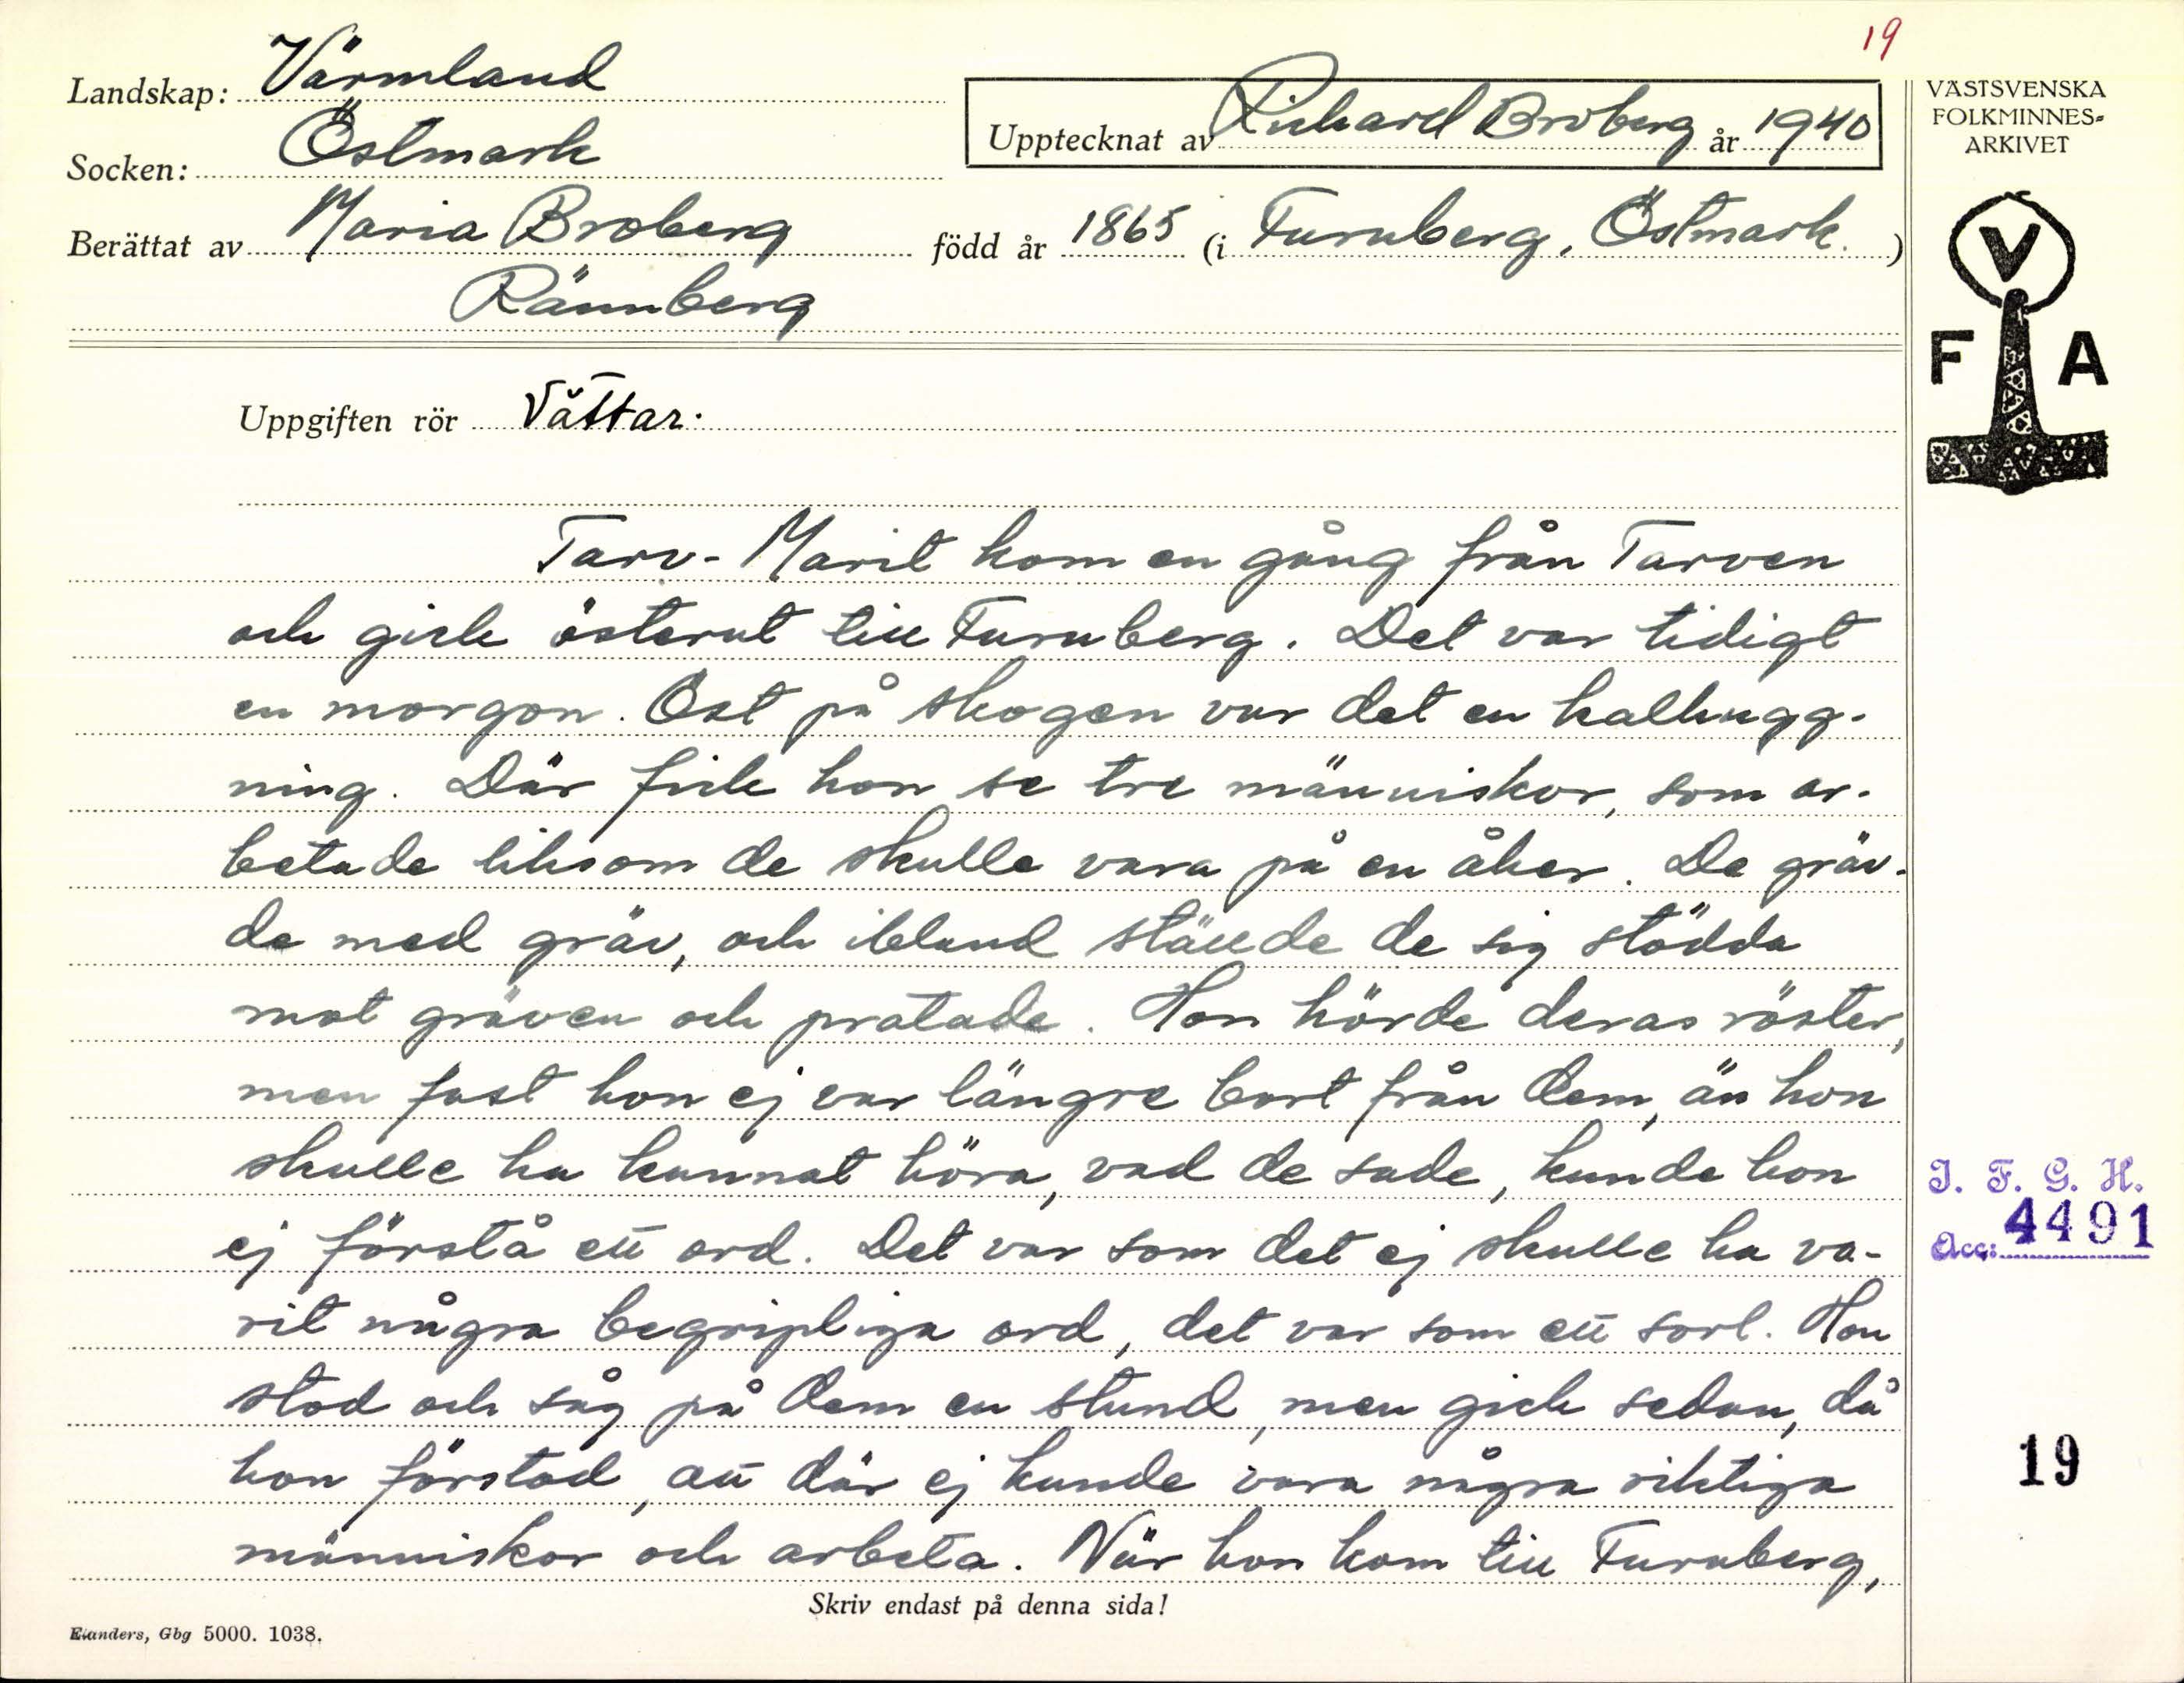 19
Landskap: Värmland
Socken: Östmark
Upptecknat av Richard Broberg år 1940
Berättat av Maria Broberg född år 1865 (i Furuberg, Östmark.)
Rännberg
VÄSTSVENSKA
FOLKMINNES-
ARKIVET
V
F A
Uppgiften rör Vättar.
Tarv-Marit kom en gång från Tarven
och gick österut till Furuberg. Det var tidigt
en morgon. Öst på skogen var det en kalhugg-
ning. Där fick hon se tre människor, som ar-
betade liksom de skulle vara på en åker. De gräv-
de med gräv, och ibland ställde de sig stödda
mot gräven och pratade. Hon hörde deras röster,
men fast hon ej var längre bort från dem, än hon
skulle ha kunnat höra, vad de sade, kunde hon
ej förstå ett ord. Det var som det ej skulle ha va-
rit några begripliga ord, det var som ett sorl. Hon
stod och såg på dem en stund, men gick sedan, då
hon förstod, att där ej kunde vara några riktiga
människor och arbeta. När hon kom till Furuberg,
I. F. G. H.
Acc: 4491
19
Skriv endast på denna sida!
Elanders, Gbg 5000. 1038.